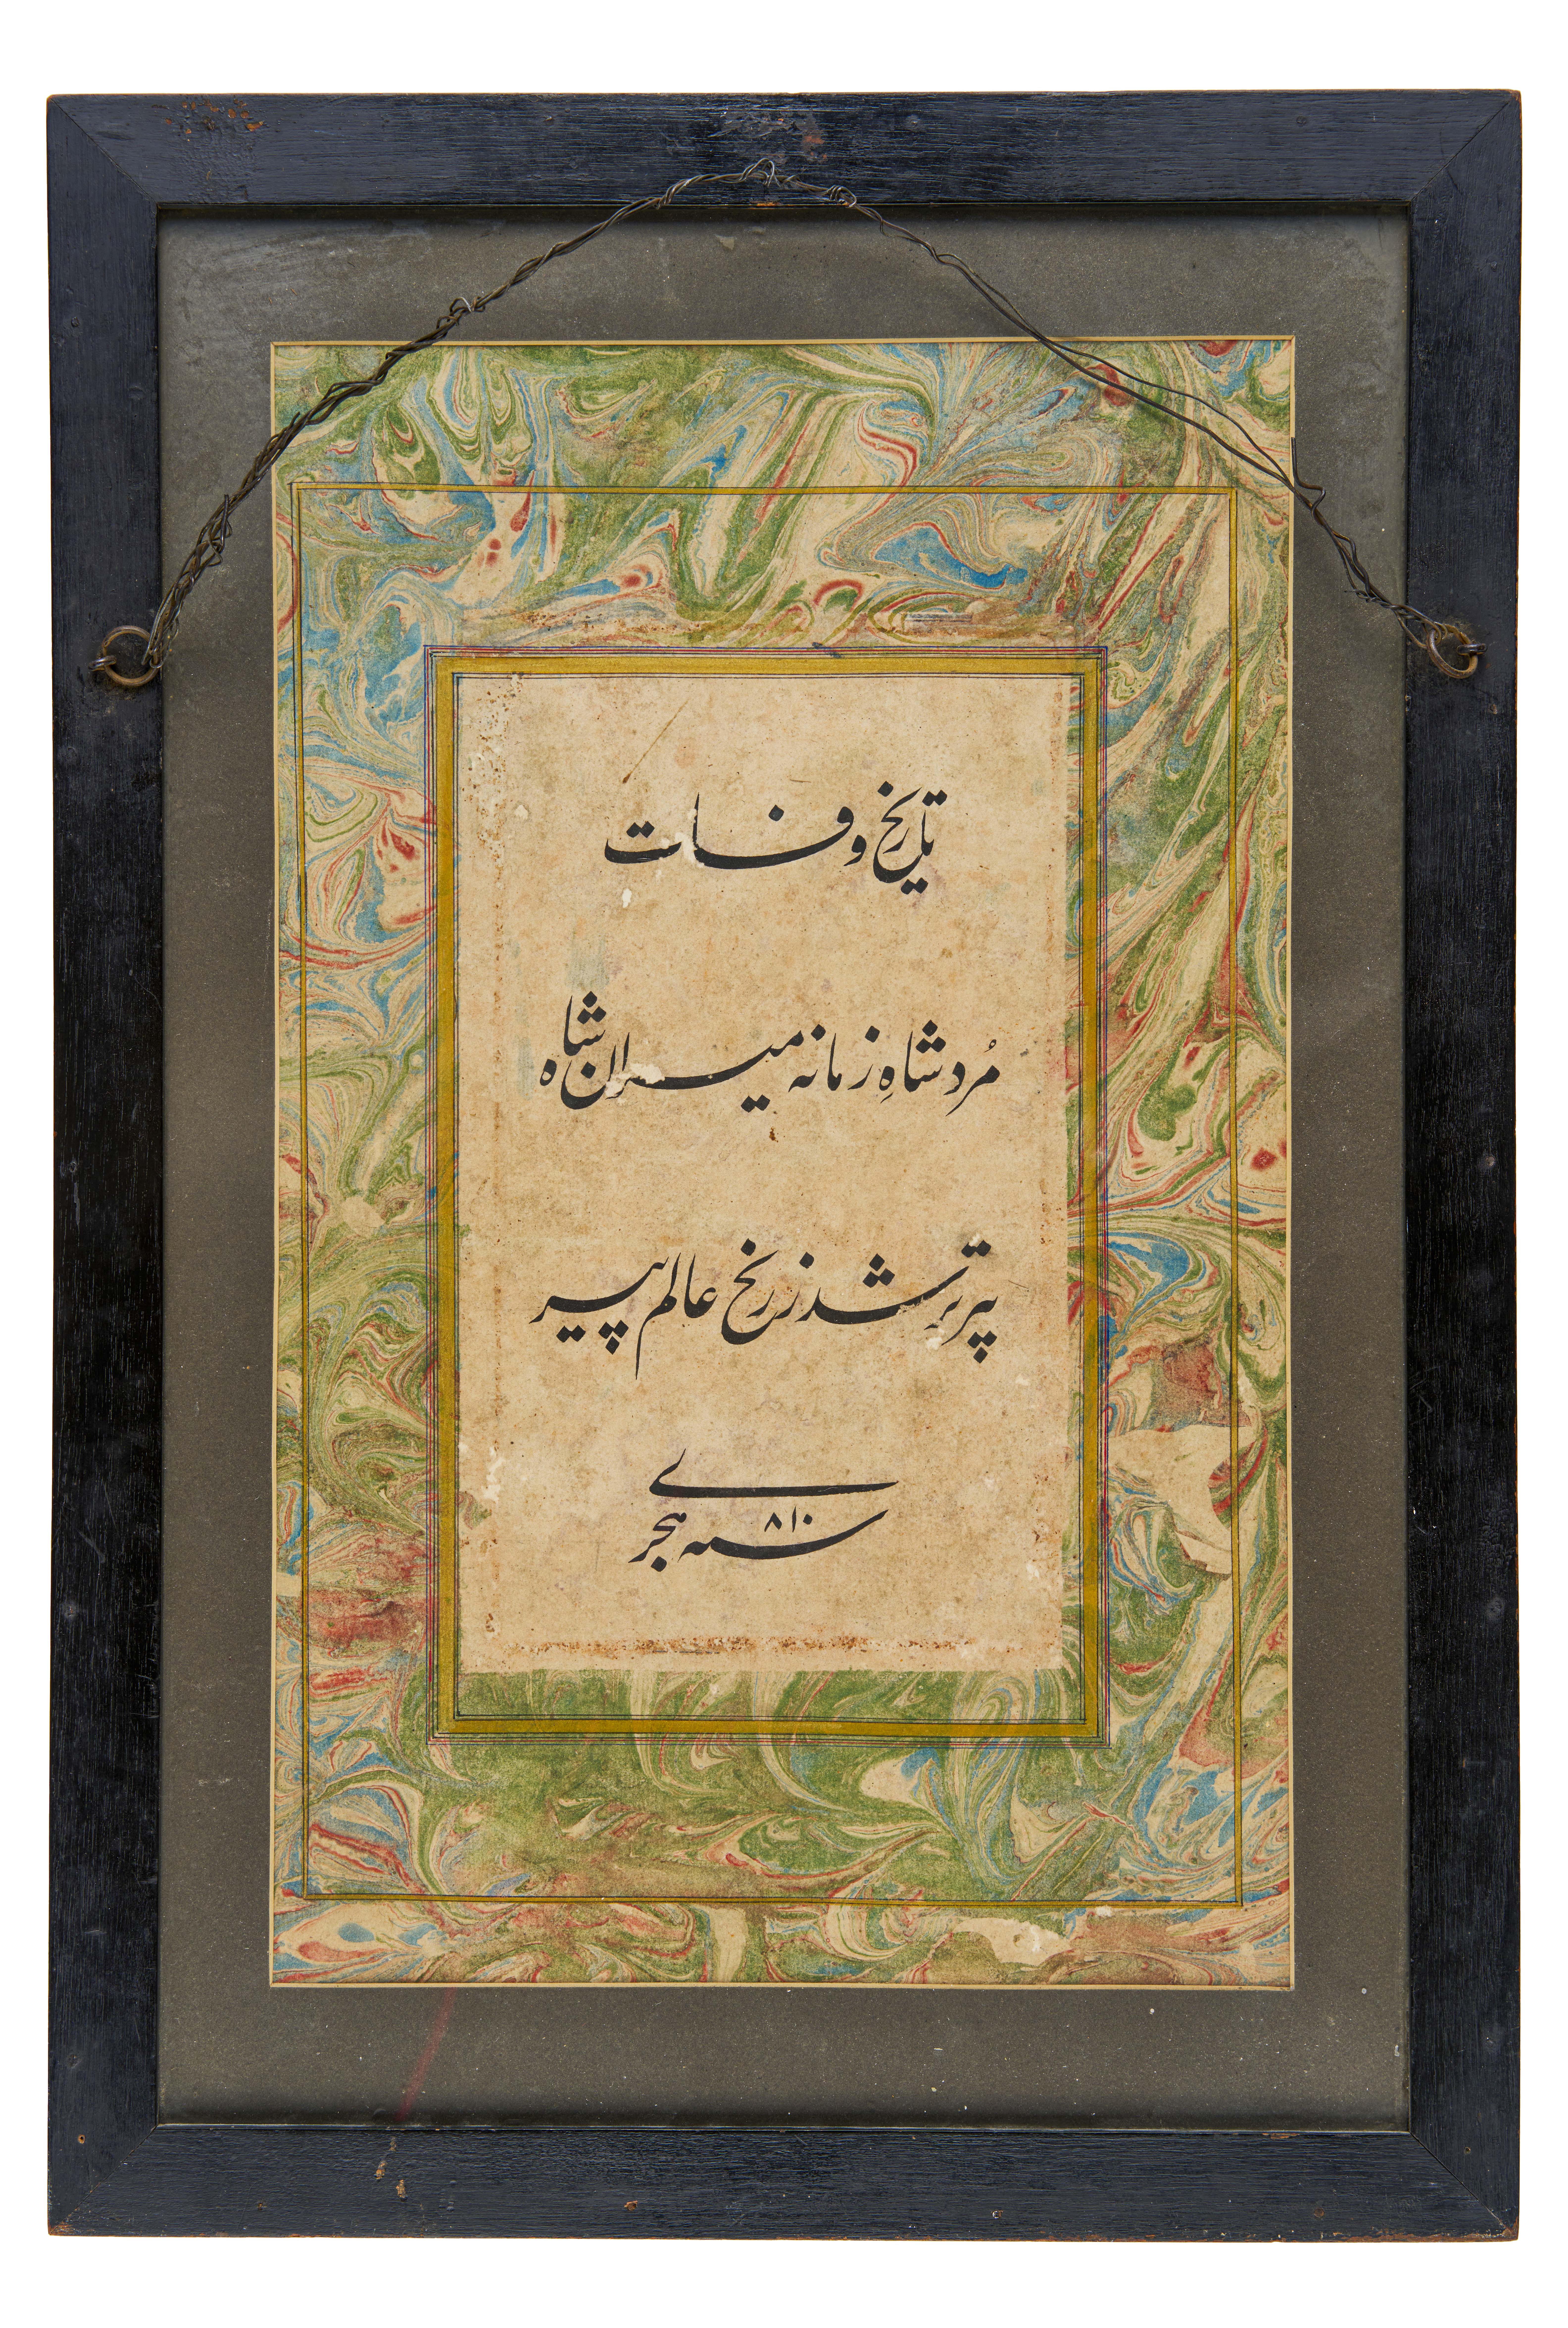 تاریخ وفات
مُرد شاهِ زمانه میران شاه
پیر تر شد ز رنخ عالم پیر
سنه ۸۱۰ هجری